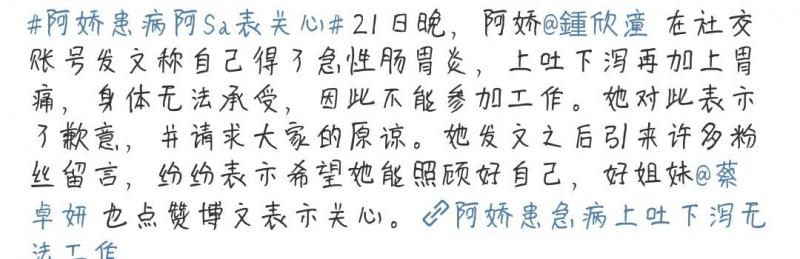 #阿娇患病阿Sa表关心#21日晚，阿娇@鍾欣潼 在社交
账号发文称自己得了急性肠胃炎，上吐下泻再加上胃
痛，身体无法承受，因此不能参加工作。她对此表示
了歉意，并请求大家的原谅。她发文之后引来许多粉
丝留言，纷纷表示希望她能照顾好自己，好姐妹@蔡
卓妍 也点赞博文表示关心。阿娇患急病上吐下泻无
法工作